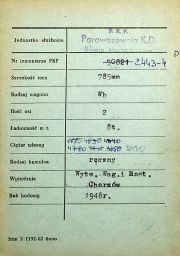 P.K.P.
Jednostka służbowa Parowozownia K.D.
Nr inwentarza PKP 50821 C443-4
Szerokość toru 785mm
Rodzaj wagonu Wh
Ilość osi 2
Ładowność w t 8t.
Ciężar własny
3450
Rodzaj hamulca ręczny
Wytwórnia Wytw.Wag.i Most.
Chorzów
Rok budowy 1948r.